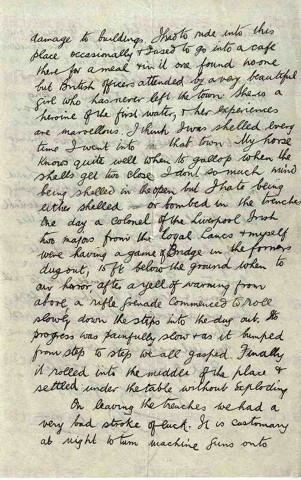 damage to buildings. I had to ride into this
place occasionally & used to go into a cafe
there for a meal & in it one found no one
but British officers attended by a very beautiful
girl who has never left the town. She is a
heroine of the first water, & her experiences
are marvellous. I think I was shelled every
time I went into that town. My horse
knows quite well when to gallop when the
shells get too close. I dont so much mind
being shelled in the open but I hate being
either shelled or bombed in the trenches
One day a Colonel of the Liverpool Irish
two majors from the Loyal Lancs & myself
were having a game of Bridge in the formers
dug out, 15 ft below the ground when to
my horror, after a yell of warning from
above, a rifle grenade commenced to roll
slowly down the steps into the dug out. Its
progress was painfully slow & as it bumped
from step to step we all gasped. Finally
it rolled into the middle of the place &
settled under the table without exploding
On leaving the trenches we had a
very bad stroke of luck. It is customary
at night to turn machine guns onto